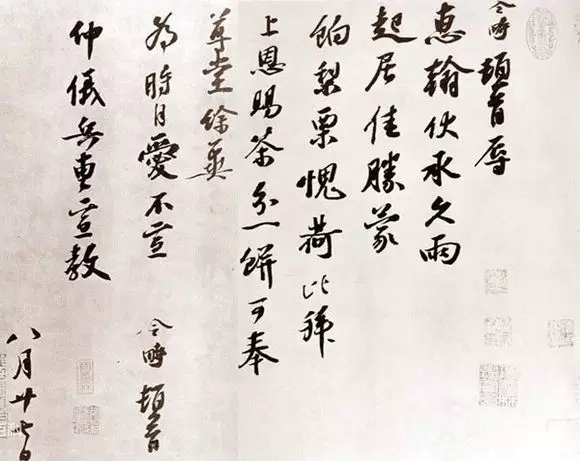 令畤頓首辱
惠翰伏承久雨
起居佳勝蒙
餉梨栗愧荷比拜
上恩賜茶分一餅可奉
尊堂餘冀
為時自愛不宣 令畤頓首
仲儀兵曹宣教
八月廿七日